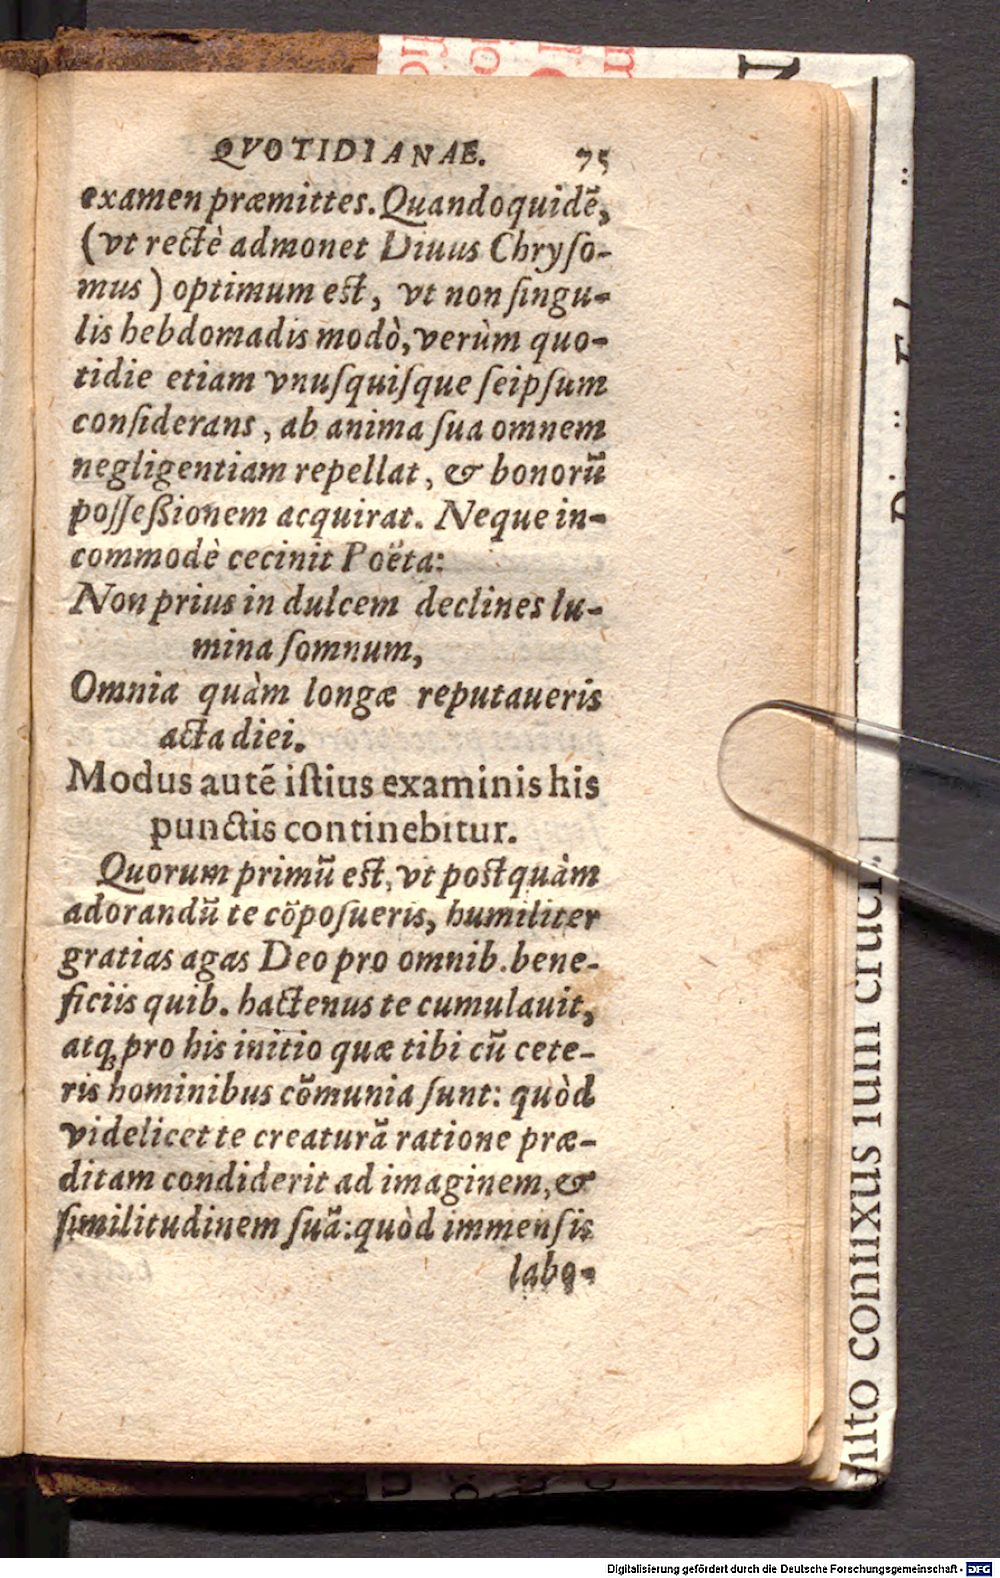 QVOTIDIANAE. 75
examen præmittes. Quandoquidẽ,
(vt rectè admonet Diuus Chryſo-
mus) optimum est, vt non ſingu-
lis hebdomadis modò, verùm quo-
tidie etiam vnuſquiſque ſeipſum
conſiderans, ab anima ſua omnem
negligentiam repellat, & bonorũ
poſſeßionem acquirat. Neque in-
commodè cecinit Poëta:
Non prius in dulcem declines lu-
mina ſomnum,
Omnia quàm longæ reputaueris
acta diei.
Modus autẽ iſtius examinis his
punctis continebitur.
Quorum primũ est, vt postquàm
adorandũ te cõpoſueris, humiliter
gratias agas Deo pro omnib. bene-
ficiis quib. hactenus te cumulauit,
atq; pro his initio quæ tibi cũ cete-
ris hominibus cõmunia ſunt: quòd
videlicet te creaturã ratione præ-
ditam condiderit ad imaginem, &
ſimilitudinem ſuã: quòd immenſis
labo-
cruci.
Digitalisierung gefördert durch die Deutsche Forschungsgemeinschaft - DFG